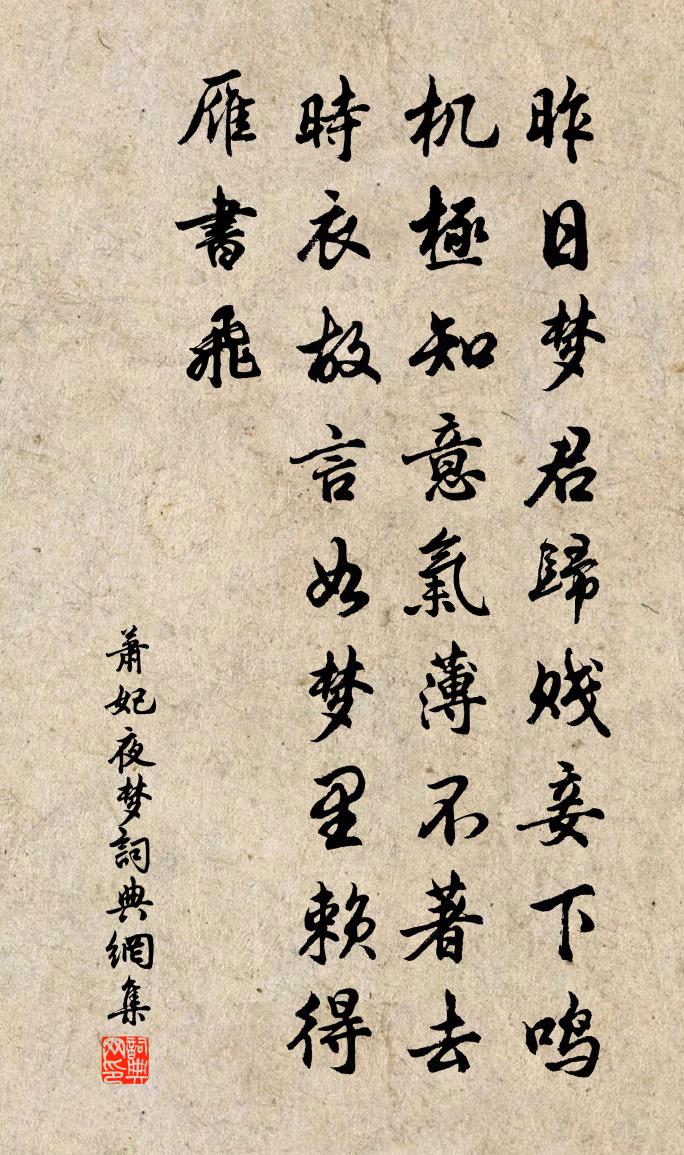 昨日梦君歸贱妾下鸣
机極知意氣薄不著去
時衣故言如梦里赖得
雁書飛
萧妃夜梦詞典網集
詞典网印